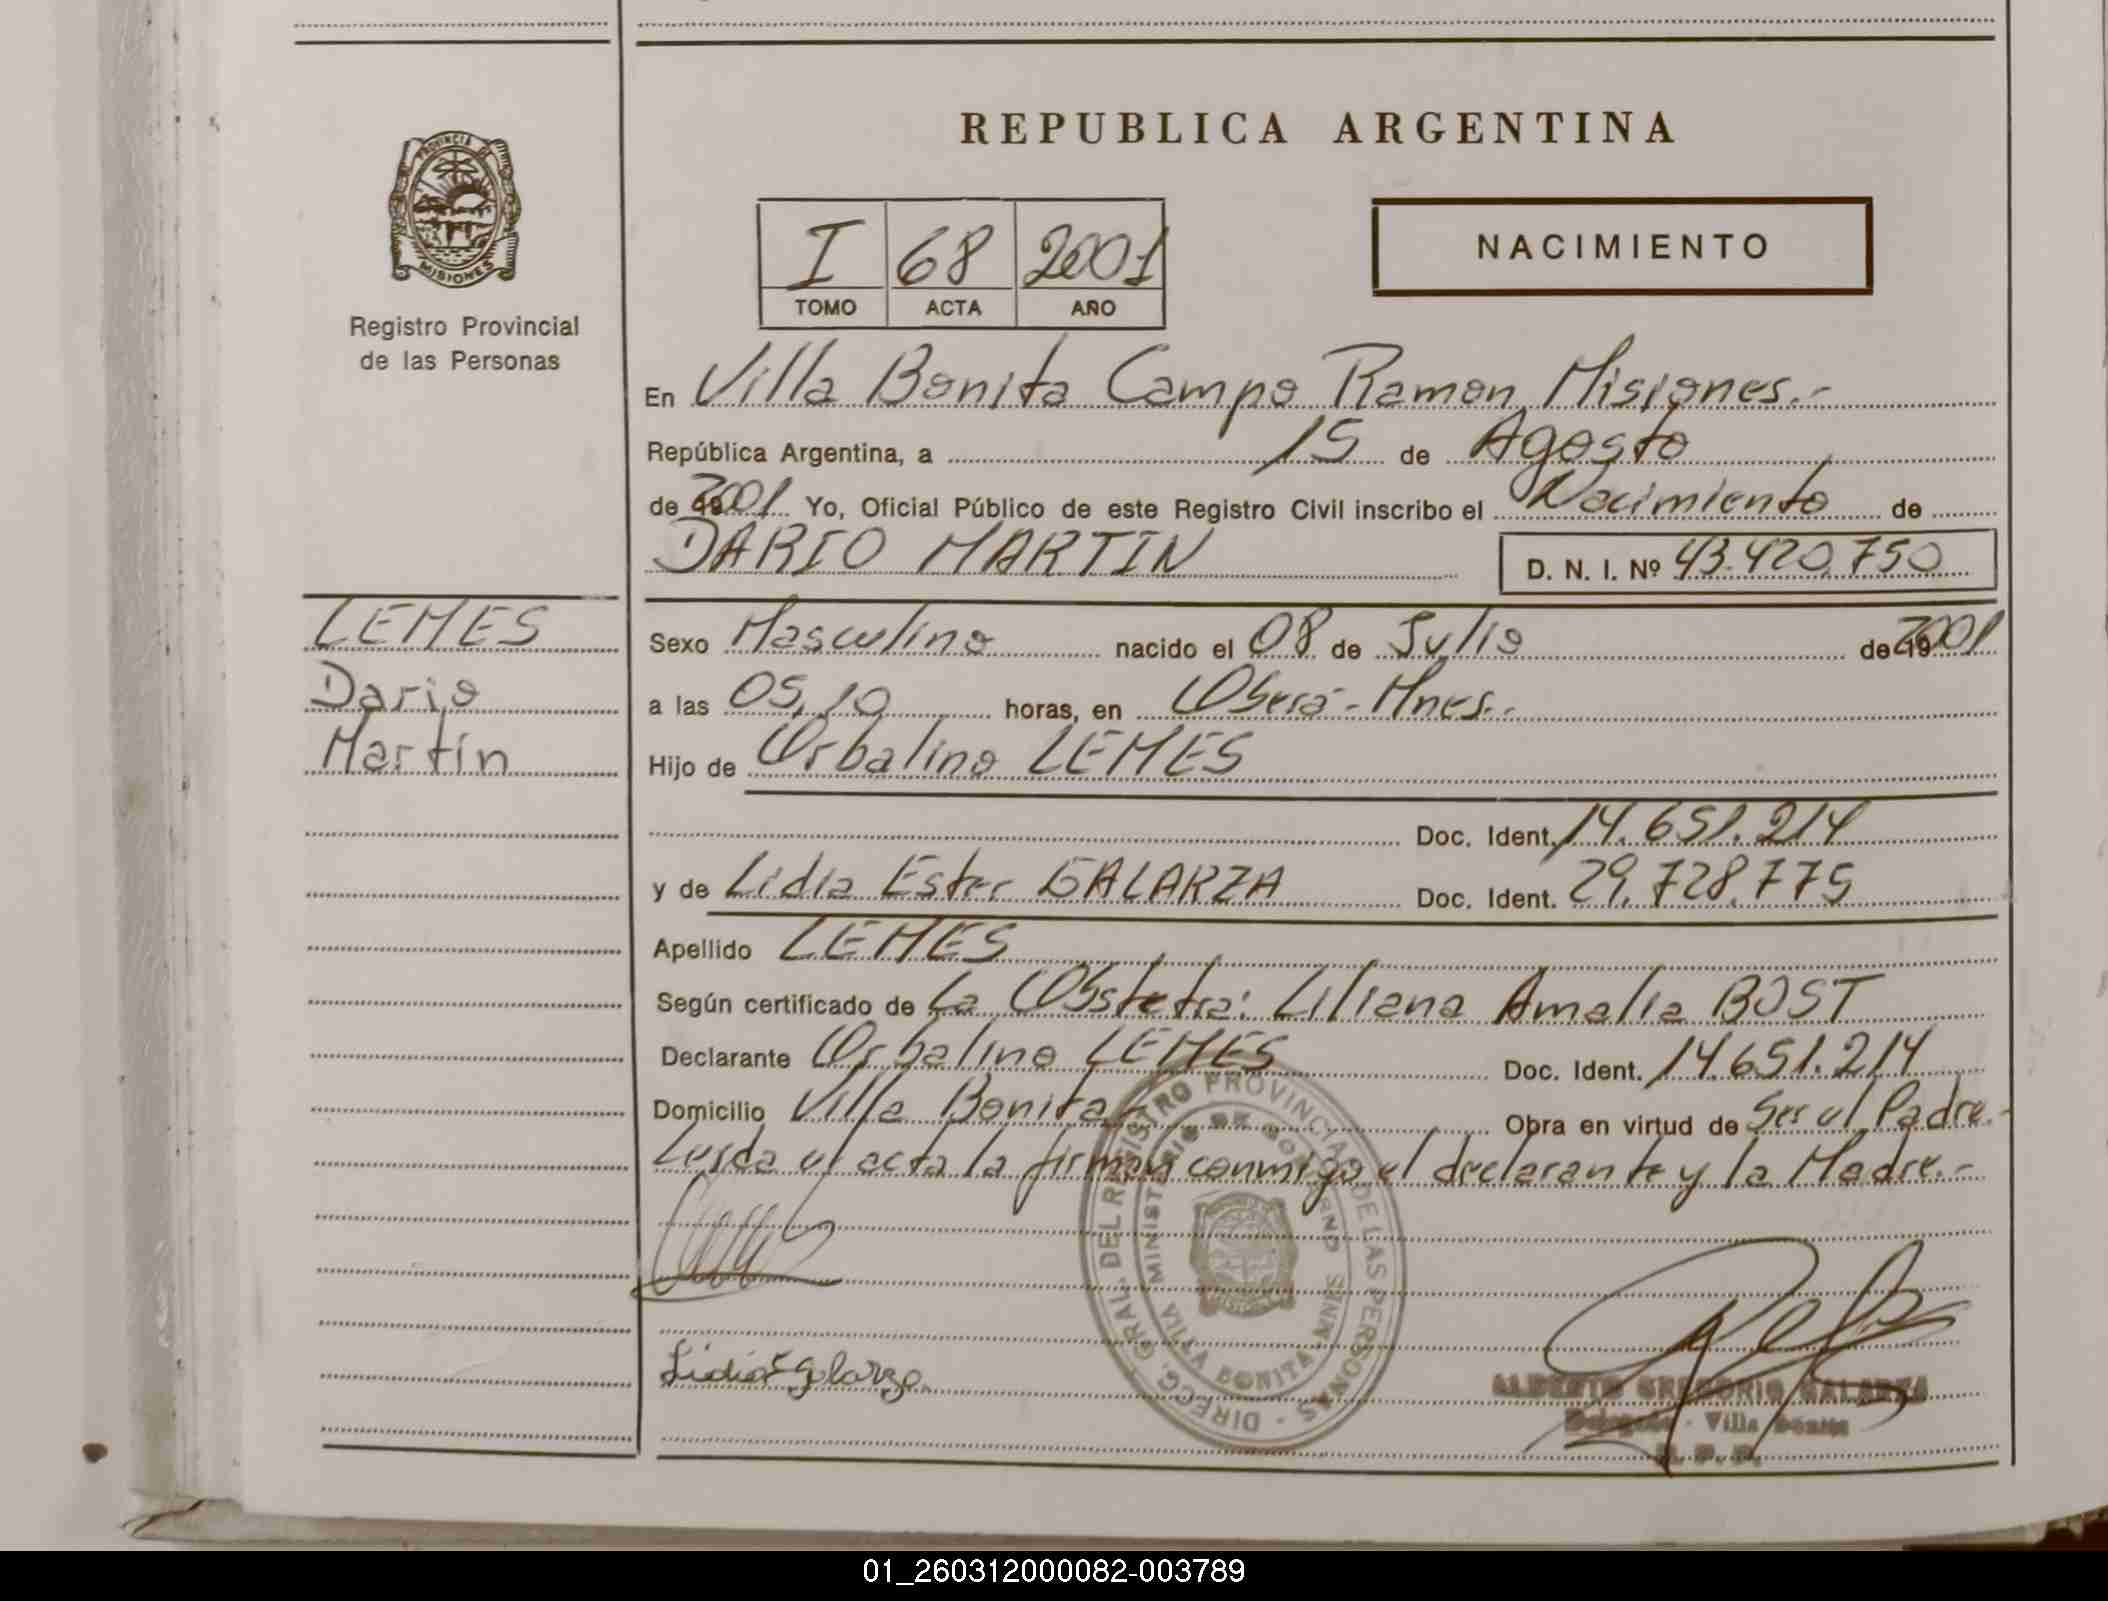 REPUBLICA ARGENTINA
PROVINCIA DE MISIONES
Registro Provincial
de las Personas
I 68 2001
TOMO ACTA AÑO
NACIMIENTO
En Villa Bonita Campo Ramon Misiones.-
República Argentina, a 15 de Agosto
de 2001 Yo, Oficial Público de este Registro Civil inscribo el Nacimiento de
DARIO MARTIN D. N. I. Nº 43.420.750
LEMES
Dario
Martín
Sexo Masculino nacido el 08 de Julio de 2001
a las 05,10 horas, en Oberá - Mnes.-
Hijo de Orbalino LEMES
Doc. Ident. 14.651.214
y de Lidia Ester GALARZA Doc. Ident. 29.728.775
Apellido LEMES
Según certificado de La Obstetra: Liliana Amalia BOST
Declarante Orbalino LEMES Doc. Ident. 14.651.214
Domicilio Villa Bonita Obra en virtud de Ser el Padre.-
Leida el acta la firman conmigo el declarante y la Madre.-
DIRECC. GRAL. DEL REGISTRO PROVINCIAL DE LAS PERSONAS -
MINISTERIO DE GOBIERNO
VILLA BONITA - MNES
Lidia E Galarza
ALBERTO GREGORIO GALARZA
Delegado - Villa Bonita
R. P. P.
01_260312000082-003789